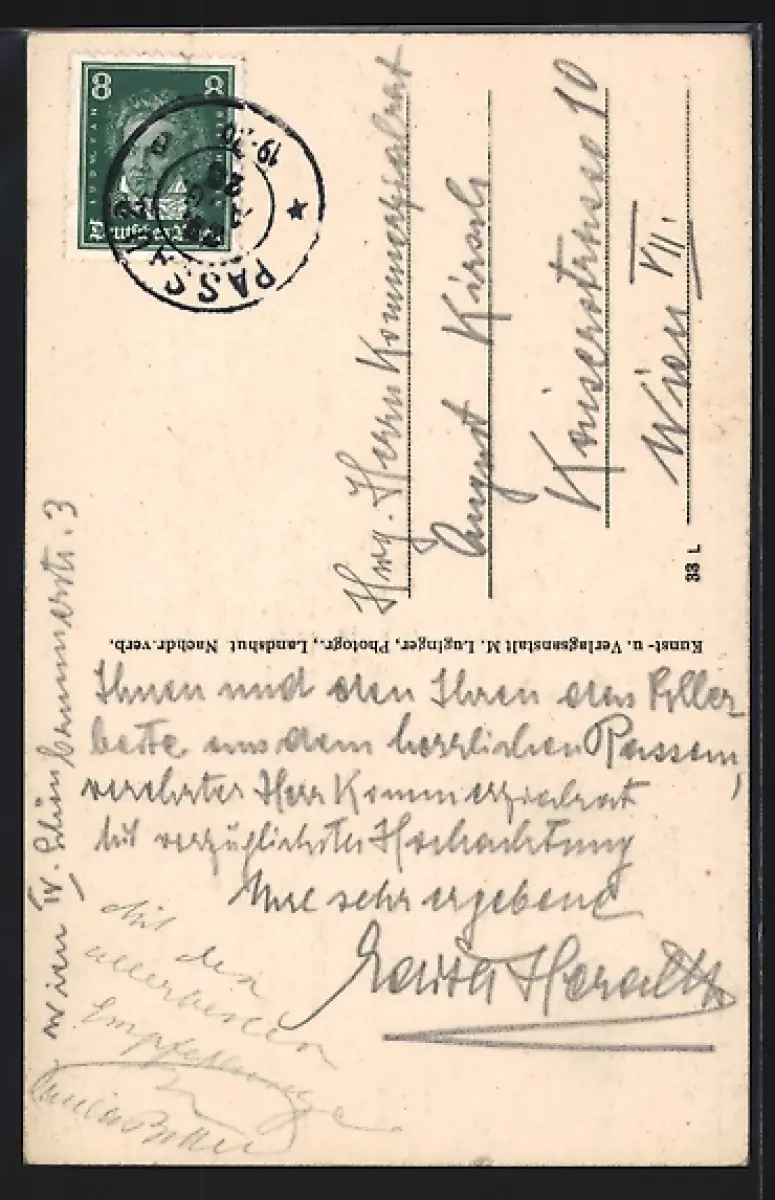 8 8
LUDW. VAN
PASSAU 2
19-20
Hwg. Herrn Kommerzialrat
August Kirsch
Kaiserstrasse 10
Wien VII.
33 L
Kunst- u. Verlagsanstalt M. Luginger, Photogr., Landshut Nachdr. verb.
Ihnen und den Ihren das Aller
beste aus dem herrlichen Passau,
verehrter Herr Kommerzialrat
Mit vorzüglichster Hochachtung
Ihre sehr ergebene
Edith
Wien IV. Schönbrunnerstr. 3
Mit den
allerbesten
Empfehlungen